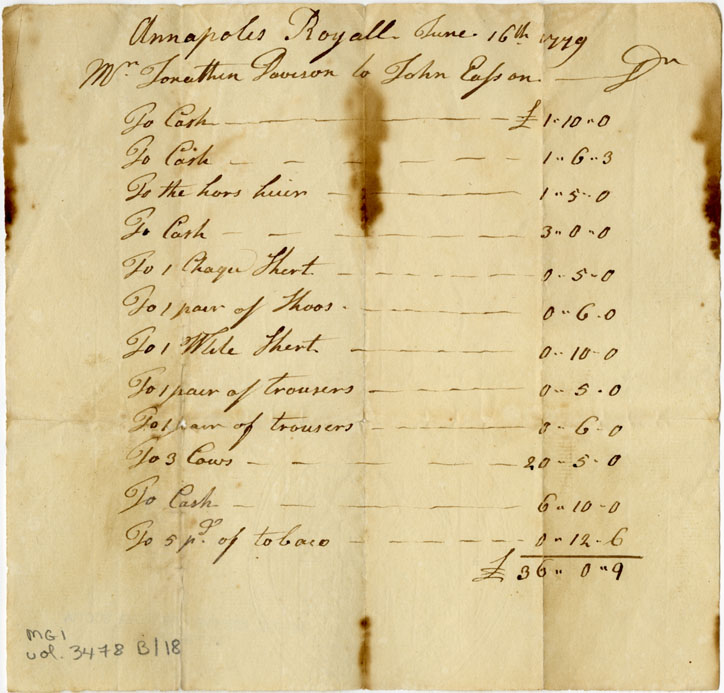 Annapoles Royall June 16th 1779
Mr Jonathen Davison to John Easson Dr
To Cash £ 1 " 10 " 0
To Cash 1 " 6 " 3
To the hors hier 1 " 5 " 0
To Cash 3 " 0 " 0
To 1 Chaque Shert 0 " 5 " 0
To 1 pair of Shoos 0 " 6 " 0
To 1 Wite Shert 0 " 10 " 0
To 1 pair of trousers 0 " 5 " 0
To 1 pair of trousers 0 " 6 " 0
To 3 Cows 20 " 5 " 0
To Cash 6 " 10 " 0
To 5 pd of tobaco 0 " 12 " 6
£ 36 " 0 " 9
MG1
vol. 3478 B/18